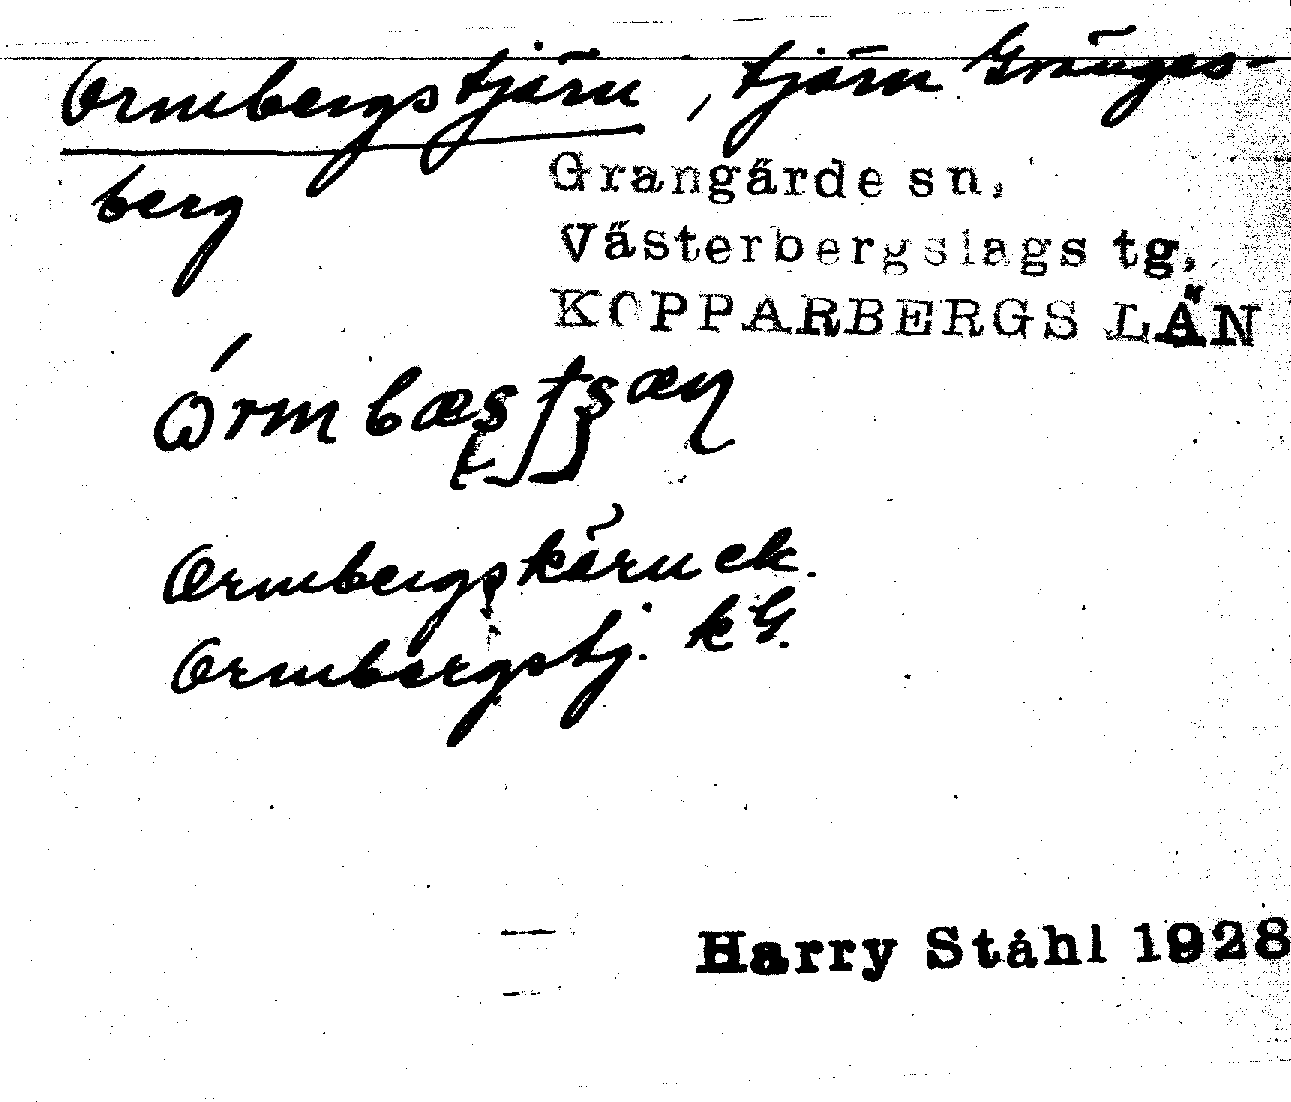 Ormbergstjärn, tjärn Gränges-
berg
Grangärde sn,
Västerbergslags tg,
KOPPARBERGS LÄN
Ormbergskärn ek.
Ormbergstj. kG.
Harry Ståhl 1928